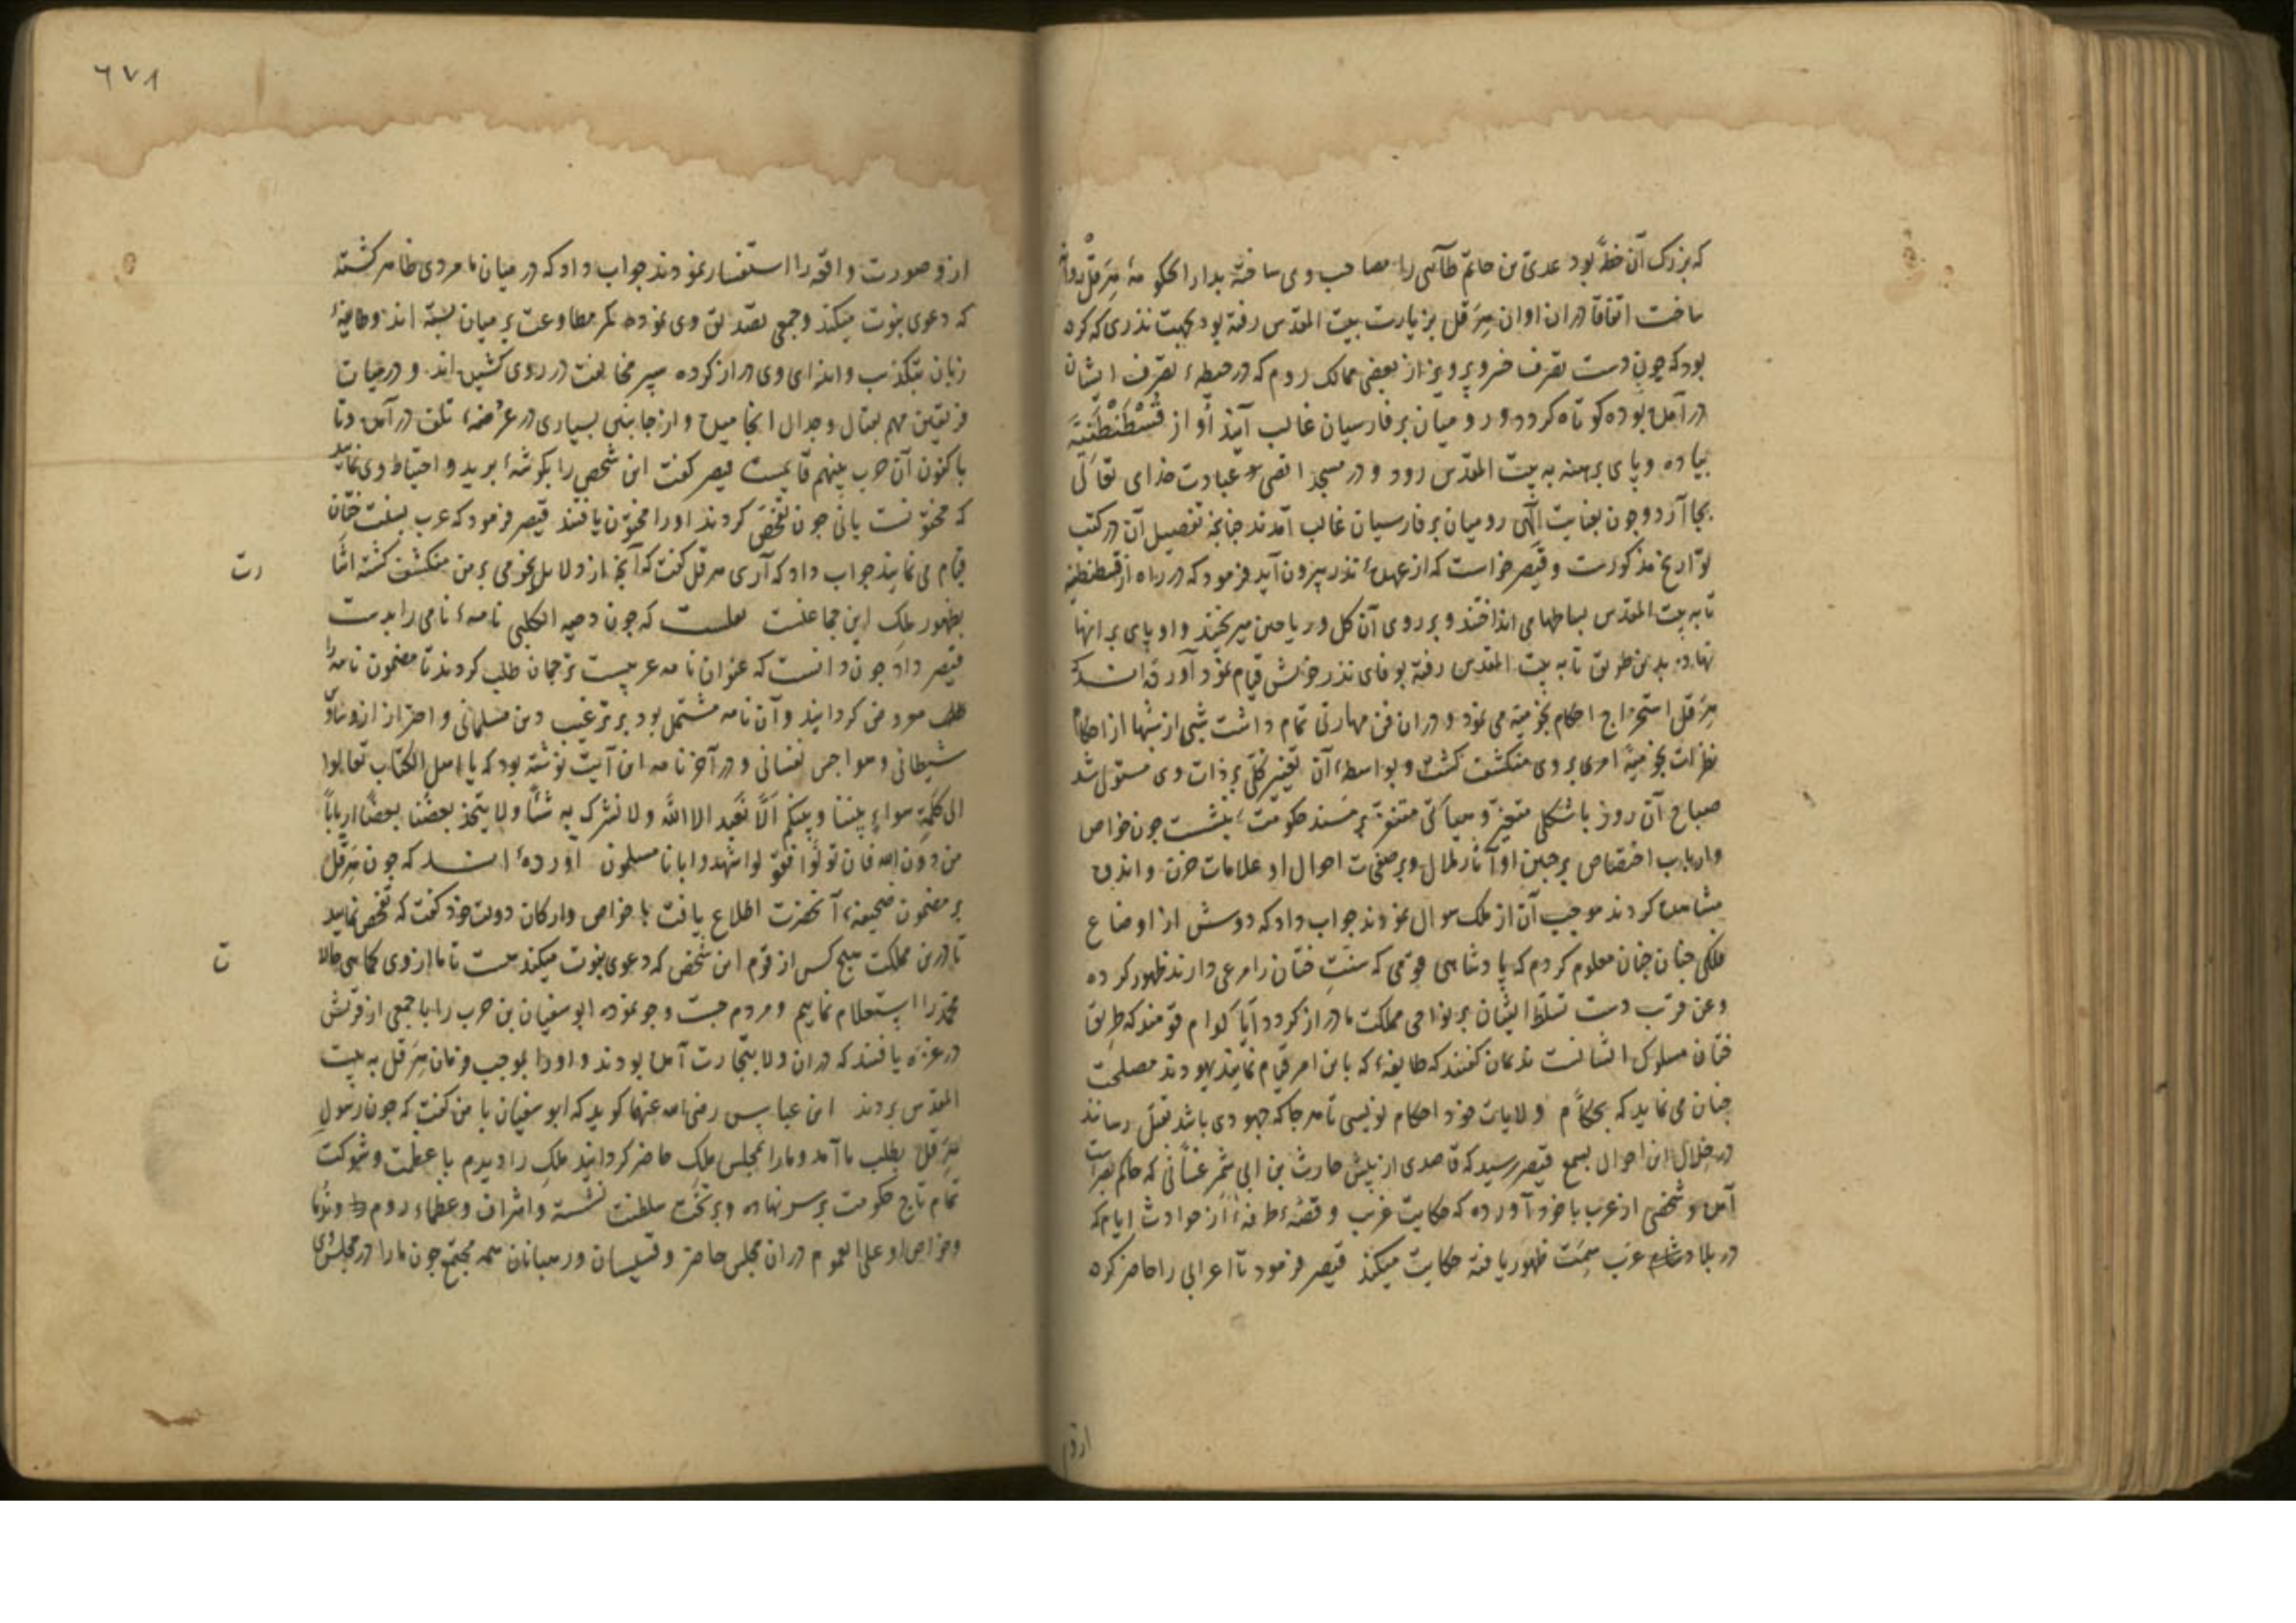 که بزرک آن خطّه بود عدی بن حاتم طآئی را مصاحب وی ساخته بدار الحکومهٔ هِرَقلْ روانه
ساخت اتفاقا دران اوان هِرَقل بزیارت بیت المقدس رفته بود بجهت نذری که کرده
بود که چون دست تصرف خسرو پرویز از بعضی ممالک روم که در حیطهٔ تصرف ایشان
در آمده بوده کوتاه کردد و رومیان بر فارسیان غالب آیند او از قُسْطَنْطَنِیَّه
پیاده و پای برهنه به بیت المقدس رود و در مسجد اقصی عبادت خدای تعالی
بجا آرد و چون بعنایت الٓهی رومیان بر فارسیان غالب آمدند چنانچه تفصیل آن در کتب
تواریخ مذکورست و قیصر خواست که از عهدهٔ نذر بیرون آید فرمود که در راه از قسطنطنیه
تا به بیت المقدس بساطها می انداختند و بر روی آن کل و ریاحین میریختند و او پای بر انها
نهاده بدین طریق تا به بیت المقدس رفته بوفای نذر خویش قیام نمود آورده اند که
هِرَقل استخراج احکام نجومیّه می نمود و دران فن مهارتی تمام داشت شبی از شبها از احکام
نظرات نجومیّه امری بر وی منکشف کشت و بواسطهٔ آن تغییر کلّی بر ذات وی مستولی شد
صباح آن روز با شکلی متغیّر و هیأتی متنفّر بر مسند حکومت بنشست چون خواص
و ارباب اختصاص بر جبین او آثار ملال و بر صفحات احوال او علامات حزن و اندوه
مشاهده کردند موجب آن از ملک سوال نمودند جواب داد که دوش از اوضاع
فلکی چنان معلوم کردم که پادشاهی قومی که سنّت ختان را مرعی دارند ظهور کرده
و عن قرب دست تسلّط ایشان بر نواحی مملکت ما دراز کردد آیا کدام قومند که طریق
ختان مسلوک ایشانست ندیمان کفتند که طایفهٔ که باین امر قیام نمایند یهودند مصلحت
چنان می نماید که بحکّام ولایات خود احکام نویسی تا هر جا که جهودی باشد بقتل رسانند
در خلال این احوال بسمع قیصر رسید که قاصدی از پیش حارث بن ابی شمر غسّانی که حاکم بصراست
آمده و شخصی از عرب با خود آورده که حکایت غریب و قصّهٔ طرفهٔ از حوادث ایام که
در بلاد عرب سمت ظهور یافته حکایت میکند قیصر فرمود تا اعرابی را حاضر کرده
ازو
٦٧٨
ازو صورت واقعه را استفسار نمودند جواب داد که در میان ما مردی ظاهر کشته
که دعوی نبوت میکند و جمعی تصدیق وی نموده کمر مطاوعت بر میان بسته اند و طایفهٔ
زبان بتکذیب و ایذای وی دراز کرده سپر مخالفت در روی کشیده اند و در میان
فریقین مهم بقتال و جدال انجامیده و از جانبین بسیاری در عرْضهٔ تلف در آمده و تا
باکنون آن حرب بینهم قایمست قیصر کفت این شخص را بکوشهٔ برید و احتیاط وی نمایید
که مختونست یا نی چون تفحّص کردند او را مختون یافتند قیصر فرمود که عرب بسنت ختان
قیام می نمایند جواب داد که آری هرقل کفت که آنچه از دلایل نجومی بر من منکشف کشته اشارت
بظهور ملک این جماعتست نقلست که چون دحیه الکلبی نامهٔ نامی را بدست
قیصر داد چون دانست که عنوان نامه عربیست ترجمان طلب کردند تا مضمون نامه را
معروض کردانید و آن نامه مشتمل بود بر ترغیب دین مسلمانی و احتراز از وساوس
شیطانی و هواجس نفسانی و در آخر نامه این آیت نوشته بود که یا اهل الکتاب تعالوا
الی کلمةٍ سواءٍ بیننا و بینکم الّا نعبد الا اللّه ولا نشرک به شئاً ولا یتخذ بعضنا بعضًا ارباباً
من دون الله فان تولّوا فقولوا اشهدوا بانا مسلمون آورده اند که چون هِرَقل
بر مضمون صحیفهٔ آنحضرت اطلاع یافت با خواص و ارکان دولت خود کفت که تفحّص نمایید
تا در این مملکت هیچ کس از قوم این شخص که دعوی نبوت میکند هست تا ما از وی کماهی حالات
محمد را استعلام نماییم و مردم جست و جو نموده ابو سفیان بن حرب را با جمعی از قریش
در غزه یافتند که دران ولا بتجارت آمده بودند و او را بموجب فرمان هِرَقل به بیت
المقدس بردند ابن عباس رضی الله عنهما کوید که ابو سفیان با من کفت که چون رسول
هِرَقل بطلب ما آمد و ما را بمجلس ملک حاضر کردانید ملک را دیدم با عظمت و شوکت
تمام تاج حکومت بر سر نهاده و بر تخت سلطنت نشسته و اشراف و عظماء روم و ندما
و خواص او علی العموم دران مجلس حاضر و قسّیسان و رهبانان همه مجتمع چون ما را در مجلس وی
رت
ت